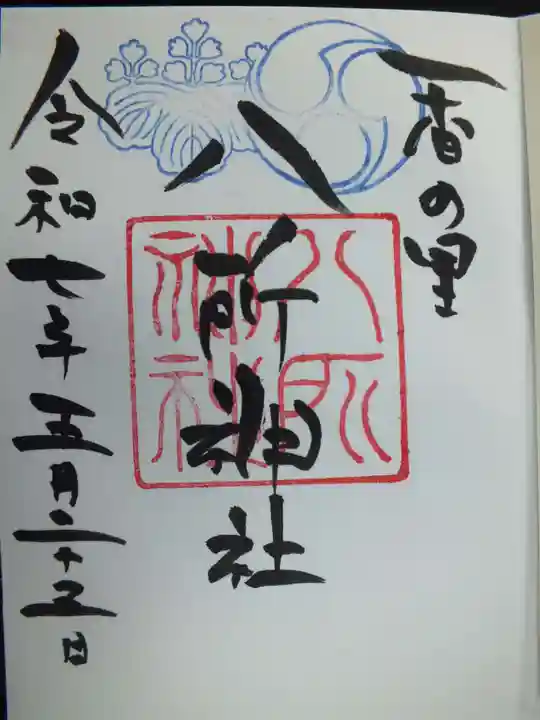 一香の里
八所神社
八所
神社
令和七年五月二十五日